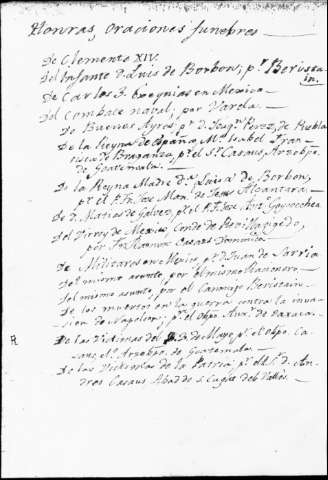 Honras, Oraciones funebres
De Clemente XIV.
Del Infante D. Luis de Borbon, p.r Beristain.
De Carlos 3. Exequias en Mexico
Del Combate naval, por Varela.
De Buenos Ayres p.r D. Joaq.n Perez, de Puebla
De la Reyna de España M.a Isabel Fran
cisca de Braganza, p.r el S.r Casaus, Arzobpo.
de Guatemala.
De la Reyna Madre D.a Luisa de Borbon,
p.r el P. Fr. Jose Man. de Jesus Alcantara.
De D. Matias de Galvez, p.r el P. Fr. Jose Ant.o Goycochea
Del Virrey de Mexico, Conde de Revillagigedo,
por Fr. Ramon Casaus Dominico
De Militares en Mexico p.r D. Juan de Sarria
Del mismo asunto, por el mismo
Del mismo asunto, por el Canonigo Beristain.
De los muertos en la guerra contra la inva
sion de Napoleon, p.r el Obpo. Aux.r de Oaxaca.
De las Victimas del 2. de Mayo, p.r el Obpo. Ca
saus, el.o Arzobpo. de Guatemala.
De las Victimas de la Patria p.r el S.r D. An
dres Casaus Abad de S. Cugat del Vallés.